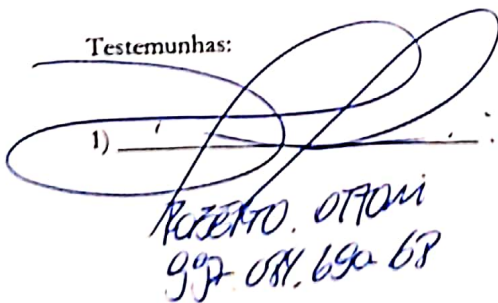 Testemunhas:
1)
ROBERTO. OTTONI
997.084.690-68